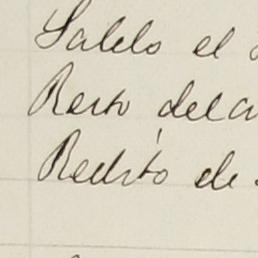 Salelo el
Resto del a
Redito de